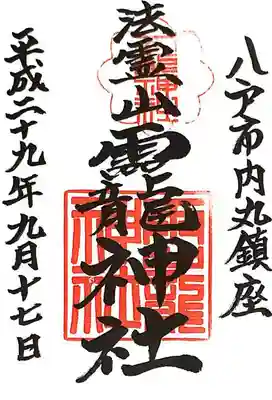 八戸市内丸鎮座
法霊山龗神社
平成二十九年九月十七日